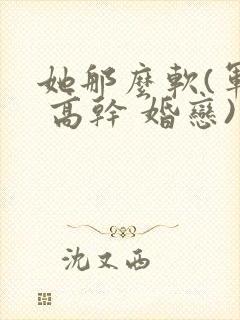 她那麼軟(軍
高幹 婚戀)
沈又西